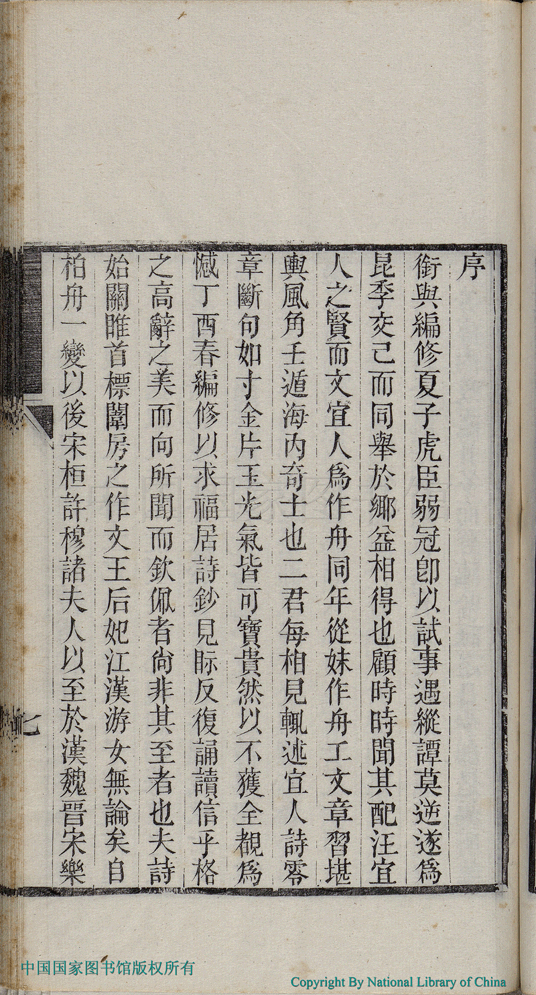 序
銜與編修夏子虎臣弱冠卽以試事遇縱譚莫逆遂爲
昆季交已而同舉於鄉益相得也顧時時聞其配汪宜
人之賢而文宜人爲作舟同年從妹作舟工文章習堪
輿風角壬遁海內奇士也二君每相見輒述宜人詩零
章斷句如寸金片玉光氣皆可寶貴然以不獲全覩爲
憾丁酉春編修以求福居詩鈔見眎反復誦讀信乎格
之高辭之美而向所聞而欽佩者尙非其至者也夫詩
始關雎首標閨房之作文王后妃江漢游女無論矣自
柏舟一變以後宋桓許穆諸夫人以至於漢魏晉宋樂
七
中国国家图书馆版权所有
Copyright By National Library of China